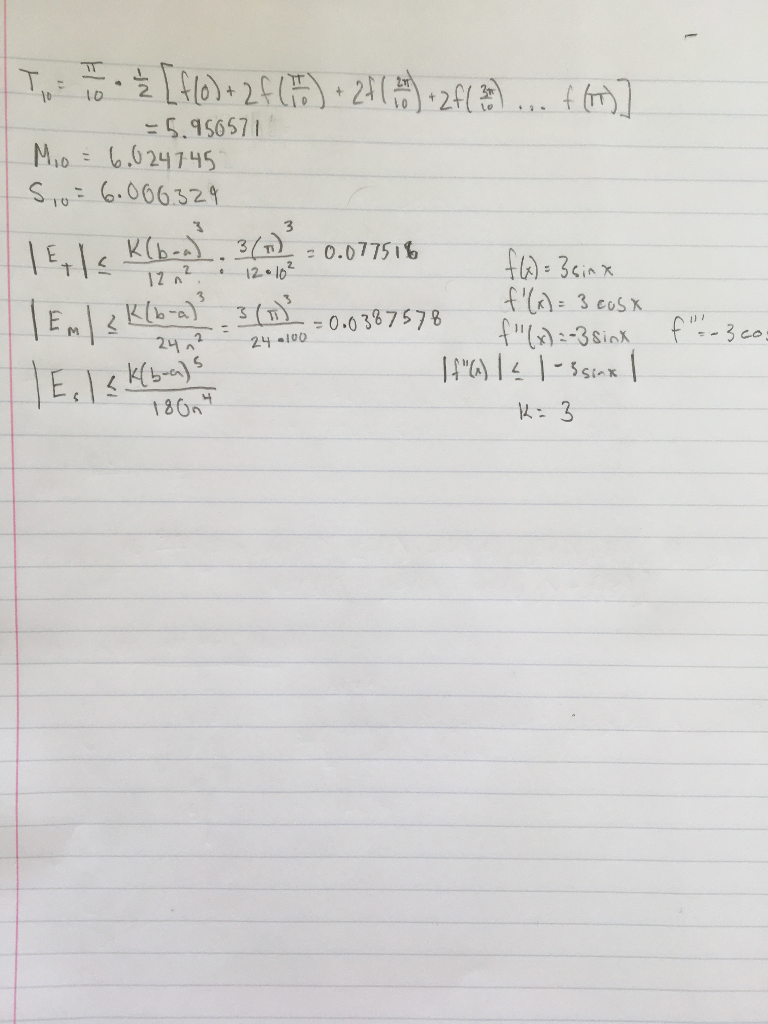 T₁₀ = π/10 • 1/2 [f(0) + 2f(π/10) + 2f(2π/10) + 2f(3π/10) ... f(π)]
= 5.950571
M₁₀ = 6.024745
S₁₀ = 6.006329
|E_T| ≤ K(b-a)³/12n² : 3(π)³/12•10² = 0.077516
|E_m| ≤ K(b-a)³/24n² = 3(π)³/24•100 = 0.0387578
|E_s| ≤ K(b-a)⁵/180n⁴
f(x) = 3sinx
f'(x) = 3 cosx
f''(x) = -3sinx f''' = -3cos
|f''(x)| ≤ |-3sinx|
K = 3